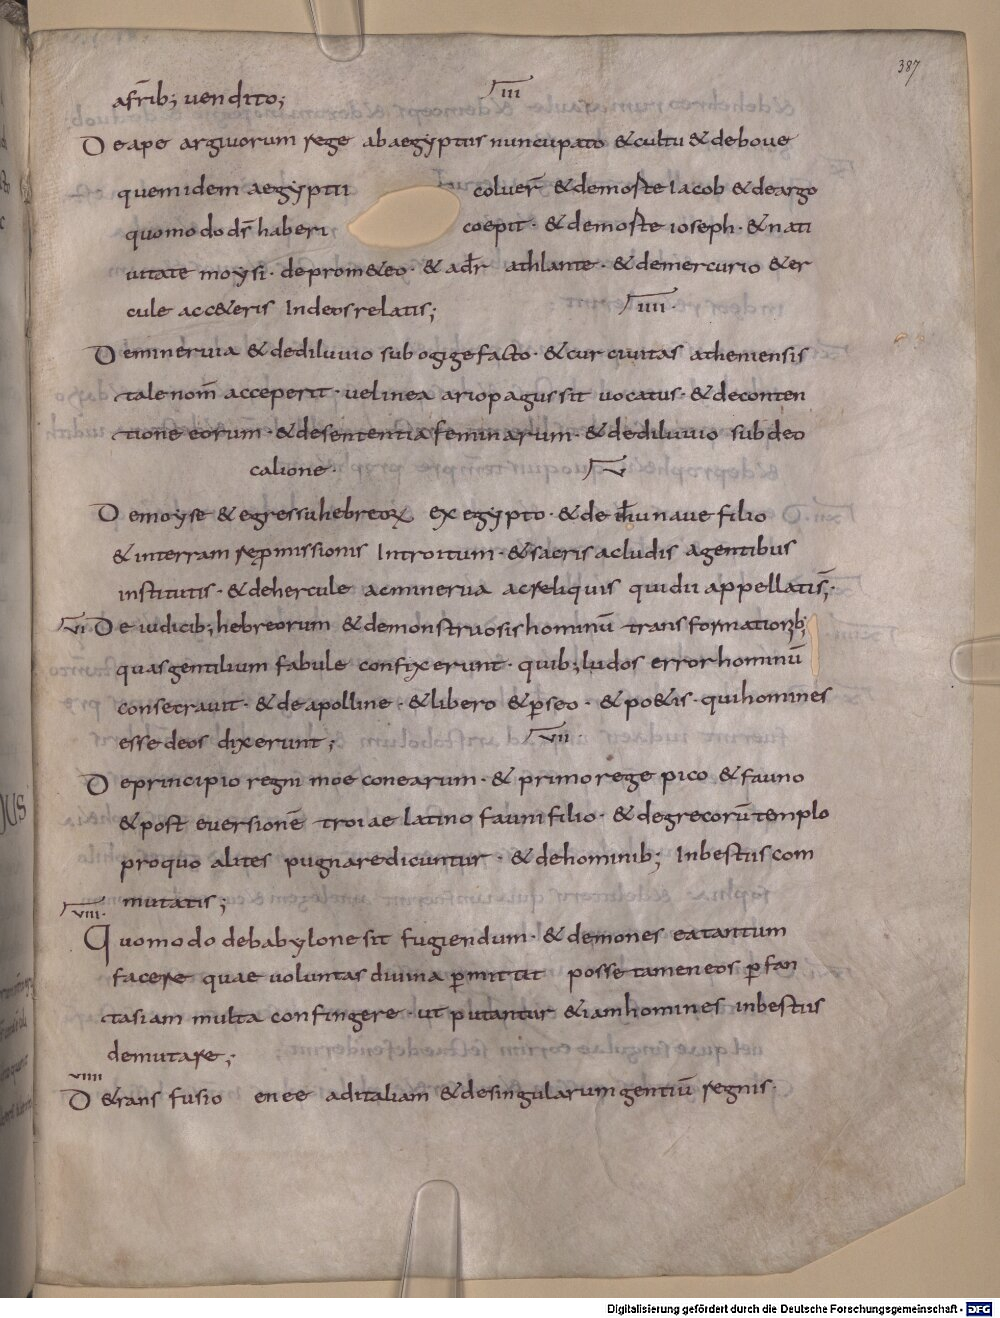 387
afr̄ib; uendito; III
De ape argiuorum rege ab aegyptiis nuncupato & cultu & deboue
quem idem aegyptii coluer̄ & demorte Iacob & de argo
quomodo ds̄ haberi coepit · & demorte ioseph · & nati
uitate moysi · de prom&eo · & adr̄ athlante · & demercurio & er
cule acc&eris Indeos relatis; IIII ·
De minerua & dediluuio sub ogige facto · & cur ciuitas atheniensis
tale nom̄ acceperit · uel inea ariopagus sit uocatus · & deconten
tione eorum · & desententia feminarum · & dediluuio sub deo
calione · V
De moyse & egressu hebreorꝝ ex egypto · & de ih̄u naue filio
& interram rep̱missionis Introitum · & sacris acludis agentibus
institutis · & dehercule acminerua acreliquis quidii appellatis̄;
VI De iudicib; hebreorum & demonstruosis hominū transformationib;
quas gentilium fabule confixerunt · quib; ludos error hominū
consecrauit · & de apolline · & libero & p̱seo · & po&is · qui homines
esse deos dixerunt; VII ·
De principio regni moeconearum · & primo rege pico & fauno
& post euersionē troiae latino fauni filio · & degrecorū templo
proquo alites pugnare dicuntur · & dehominib; Inbestiis com
mutatis;
VIII ·
Quomodo debabylone sit fugiendum · & demones eatantum
facere quae uoluntas diuina p̱mittit posse tamen eos p̱ fan
tasiam multa confingere · ut putantur & iam homines inbestiis
demutare;
VIIII
De transfusio enee aditaliam & desingularum gentiū regnis ·
Digitalisierung gefördert durch die Deutsche Forschungsgemeinschaft - DFG